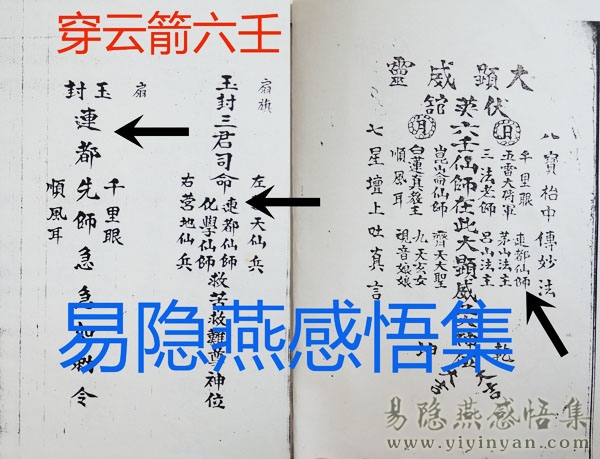 穿云箭六壬
大顯威靈
伏英館
日
月
八寶枱中傳妙法
千里眼
五雷大将軍
三法老師
連都仙師
茅山法主
吕山法主
六壬仙師在此大顯威
崑崙仙師
順風耳
齊天大聖
九天玄女
观音娘娘
七星壇上吐真言
乾
坤
扇旗
玉封三君司命
連都仙師
化學仙師
救苦救難
神位
左
天仙兵
右营地仙兵
扇
玉封
連都先師急急如
令
千里眼
順風耳
易隐燕感悟集
易隐燕感悟集
www.yiyinyan.com